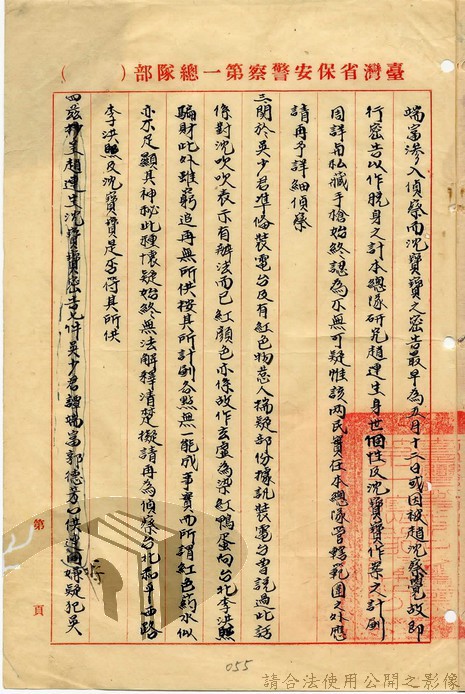 臺灣省保安警察第一總隊部（　）
端富滲入偵察而沈寶寶之密告最早為五月十二日或因被趙沈察覺故即
行密告以作脫身之計本總隊研究趙連生身世個性及沈寶寶作案之計劃
周詳與私藏手槍始終認為不無可疑惟該兩民實在本總隊管轄範圍之外應
請再予詳細偵察
三關於吳少君準備裝電台及有紅色物惹人揣疑部份據訊裝電台曾說過此話
係對沈吹吹表示有辦法而已紅顏色亦係故作玄虛為染紅鴨蛋向台北李洪熙
騙財此外雖窮追再無所供按其所計劃各點無一能成事實而所謂紅色葯水似
亦不足顯其神秘此種懷疑始終無法解釋清楚擬請再為偵察台北和平西路
李洪熙及沈寶寶是否符其所供
四茲抄呈趙連生沈寶寶密告七件吳少君譚端富郭德芳口供連同嫌疑犯吳
第　頁
055
請合法使用公開之影像